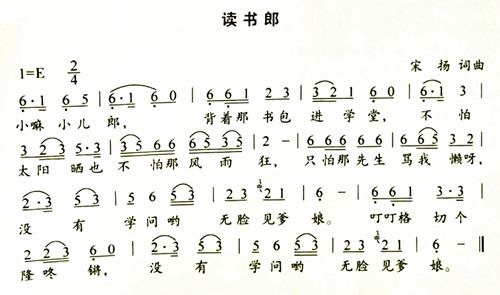 读书郎
1=E 2/4 宋 扬 词曲
6·1 6 5 | 6·1 6 0 | 6 6 1 2 3 | 3 2 1 6 0 | 6·1 3 |
小嘛 小儿 郎, 背着那 书包 进 学堂, 不 怕
3 2 3 5·3 | 3 5 6 6 6 5 3 5 | 2 - | 5 6 6 6 6 5 3 2 |
太 阳 晒也 不 怕那 风 雨 狂, 只怕那 先生 骂我 懒呀,
2·3 5 3 | 5 6 5 3 | 2 3 2 1 | 6 6 1 3 3 |
没 有 学问哟 无脸 见爹 娘。 叮叮格 切个
2 2 3 6 0 | 2·3 5 3 | 5 6 5 3 | 2 3 2 1 | 6 - ‖
隆 咚 锵, 没 有 学 问哟 无脸 见爹 娘。